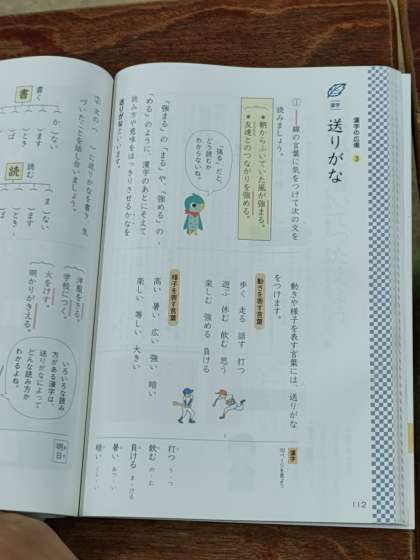 漢字の広場 3
漢字
送りがな
① ――線の言葉に気をつけて次の文を
読みましょう。
朝からふいていた風が強まる。
友達とのつながりを強める。
「強る」だと、
どう読むか
わからないね。
「強まる」の「まる」や、「強める」の
「める」のように、漢字のあとにそえて
読み方や意味をはっきりさせるかなを
送りがなといいます。
動きや様子を表す言葉には、送りがな
をつけます。
動きを表す言葉
歩く 走る 話す 打つ
遊ぶ 休む 飲む 思う
楽しむ 強める 負ける
様子を表す言葉
高い 暑い 広い 強い 暗い
楽しい 等しい 大きい
漢字
打つ
う・つ
飲む
の・む
負ける
ま・ける
暑い
あつ・い
暗い
くら・い
112
② 次の( )に送りがなを書き、気
づいたことを話し合いましょう。
書 書く
か( )ない。
( )ます
( )とき
( )ば
読 読む
よ( )ない。
( )ます
( )とき
( )ば
洋服をきる。
学校につく。
火をけす。
明かりがきえる。
いろいろな読み
方がある漢字は、
送りがなによって
どんな読み方か
わかるよね。
明日